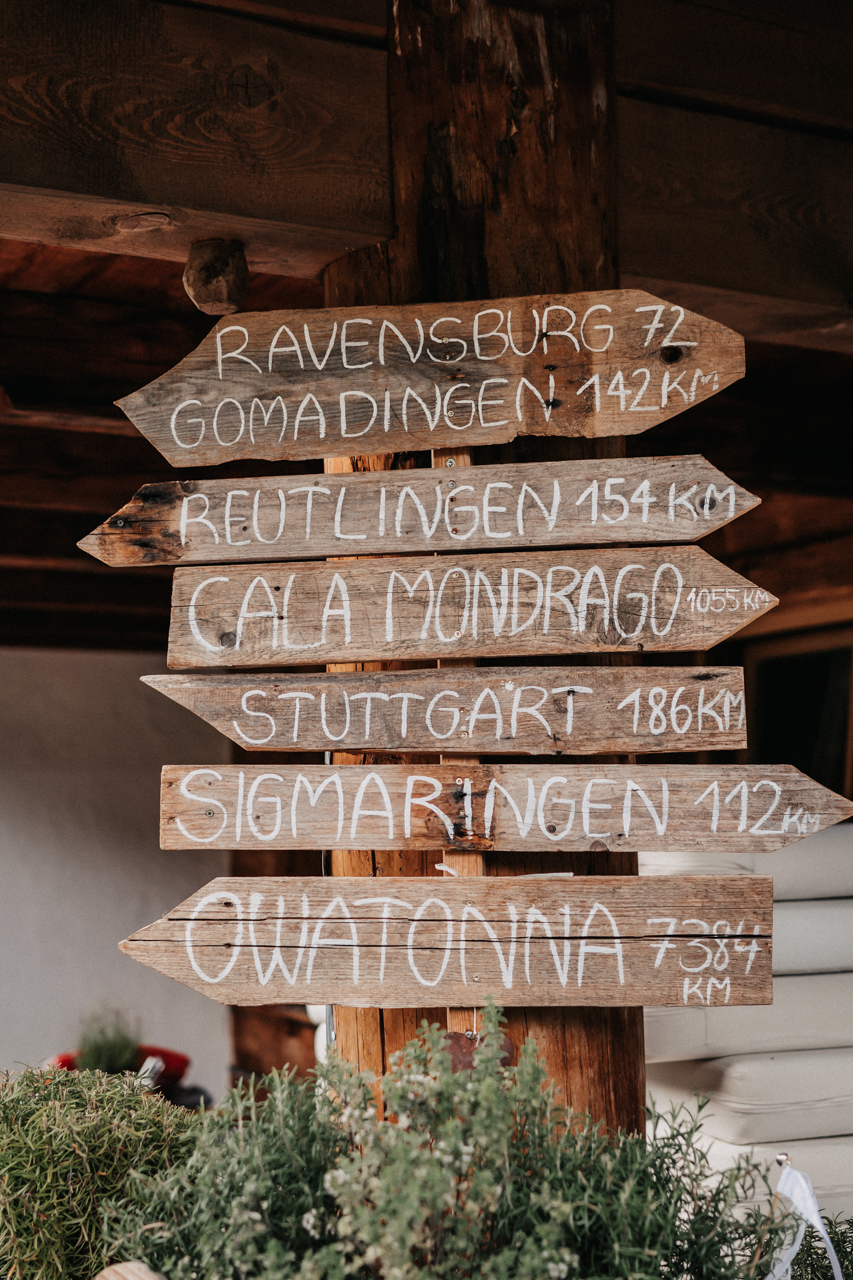 RAVENSBURG 72
GOMADINGEN 142KM
REUTLINGEN 154 KM
CALA MONDRAGO 1055 KM
STUTTGART 186KM
SIGMARINGEN 112 KM
OWATONNA 7384
KM